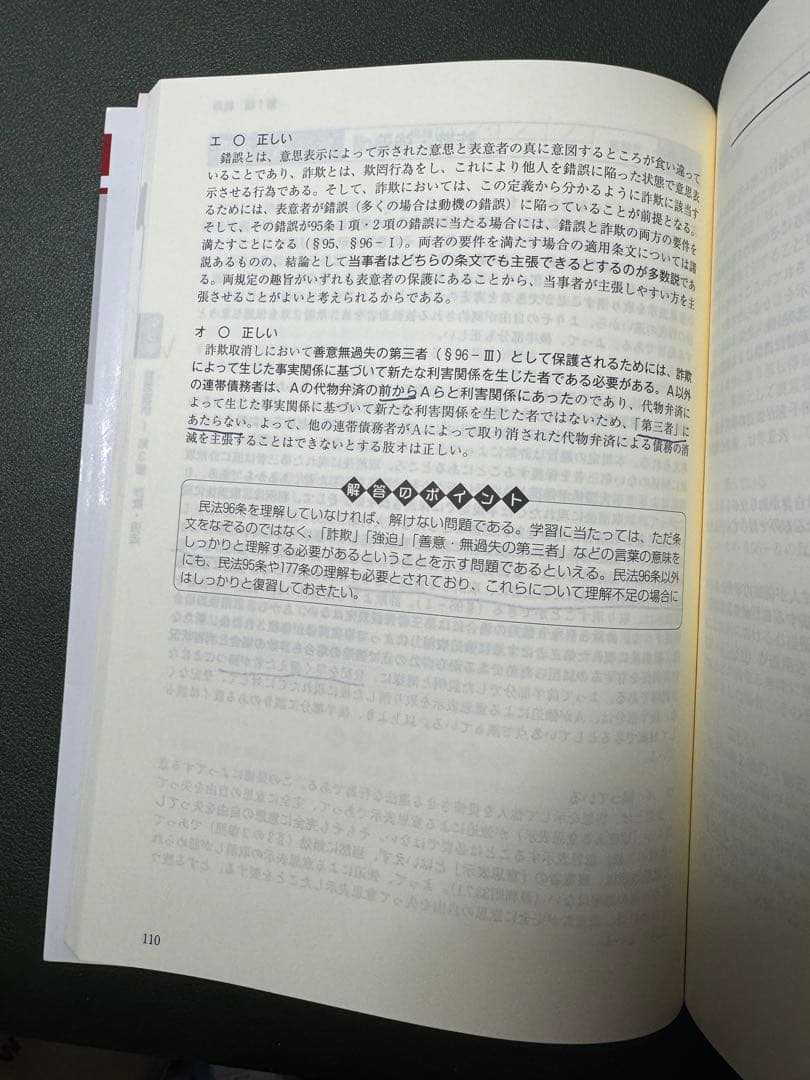 エ 〇 正しい
錯誤とは、意思表示によって示された意思と表意者の真に意図するところが食い違って
いることであり、詐欺とは、欺罔行為をし、これにより他人を錯誤に陥った状態で意思表
示させる行為である。そして、詐欺においては、この定義から分かるように詐欺に該当す
るためには、表意者が錯誤（多くの場合は動機の錯誤）に陥っていることが前提となる。
そして、その錯誤が95条1項・2項の錯誤に当たる場合には、錯誤と詐欺の両方の要件を
満たすことになる（§95、§96－Ⅰ）。両者の要件を満たす場合の適用条文については諸
説あるものの、結論として当事者はどちらの条文でも主張できるとするのが多数説であ
る。両規定の趣旨がいずれも表意者の保護にあることから、当事者が主張しやすい方を主
張させることがよいと考えられるからである。
オ 〇 正しい
詐欺取消しにおいて善意無過失の第三者（§96－Ⅲ）として保護されるためには、詐欺
によって生じた事実関係に基づいて新たな利害関係を生じた者である必要がある。A以外
の連帯債務者は、Aの代物弁済の前からAらと利害関係にあったのであり、代物弁済に
よって生じた事実関係に基づいて新たな利害関係を生じた者ではないため、「第三者」に
あたらない。よって、他の連帯債務者がAによって取り消された代物弁済による債務の消
滅を主張することはできないとする肢オは正しい。
解答のポイント
民法96条を理解していなければ、解けない問題である。学習に当たっては、ただ条
文をなぞるのではなく、「詐欺」「強迫」「善意・無過失の第三者」などの言葉の意味を
しっかりと理解する必要があるということを示す問題であるといえる。民法96条以外
にも、民法95条や177条の理解も必要とされており、これらについて理解不足の場合に
はしっかりと復習しておきたい。
110